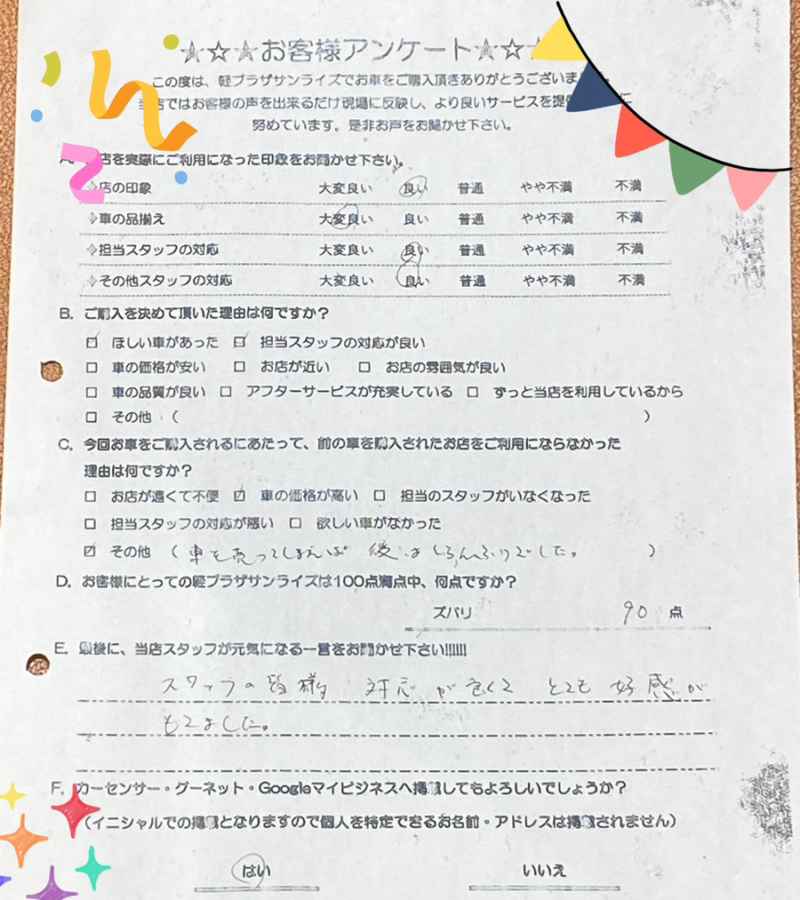 ★☆★お客様アンケート★☆
この度は、軽プラザサンライズでお車をご購入頂きありがとうございま
当店ではお客様の声を出来るだけ現場に反映し、より良いサービスを提 に
努めています。是非お声をお聞かせ下さい。
店を実際にご利用になった印象をお聞かせ下さい。
◇店の印象 大変良い 良い 普通 やや不満 不満
◇車の品揃え 大変良い 良い 普通 やや不満 不満
◇担当スタッフの対応 大変良い 良い 普通 やや不満 不満
◇その他スタッフの対応 大変良い 良い 普通 やや不満 不満
B. ご購入を決めて頂いた理由は何ですか？
☑ ほしい車があった ☑ 担当スタッフの対応が良い
□ 車の価格が安い □ お店が近い □ お店の雰囲気が良い
□ 車の品質が良い □ アフターサービスが充実している □ ずっと当店を利用しているから
□ その他 （ ）
C. 今回お車をご購入されるにあたって、前の車を購入されたお店をご利用にならなかった
理由は何ですか？
□ お店が遠くて不便 ☑ 車の価格が高い □ 担当のスタッフがいなくなった
□ 担当スタッフの対応が悪い □ 欲しい車がなかった
☑ その他 （ 車を売ってしまえば 後はしらんふりでした。 ）
D. お客様にとっての軽プラザサンライズは100点満点中、何点ですか？
ズバリ 90 点
E. 最後に、当店スタッフが元気になる一言をお聞かせ下さい!!!!!!
スタッフの皆様 対応が良くて とても 好感が
もてました。
F. カーセンサー・グーネット・Googleマイビジネスへ掲載してもよろしいでしょうか？
（イニシャルでの掲載となりますので個人を特定できるお名前・アドレスは掲載されません）
はい いいえ